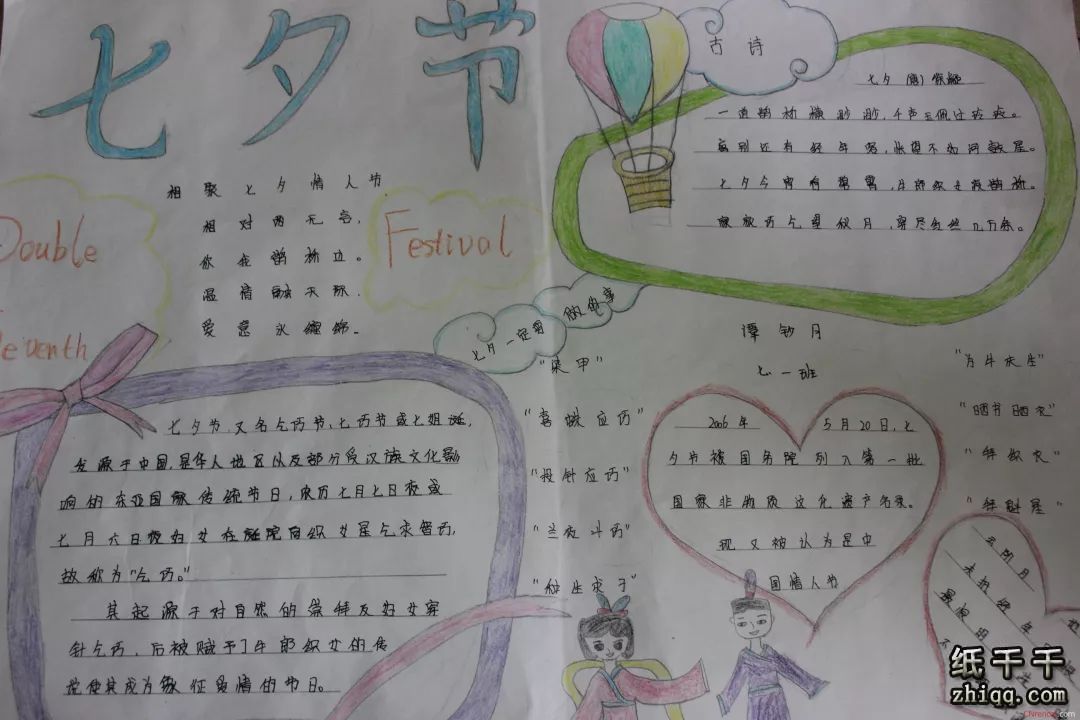 七夕节
Double
Seventh
Festival
相聚七夕情人节
相对两无言,
你我鹊桥边。
温情融天际
爱意永缠绵。
古诗
七夕
一道鹊桥横渺渺,千声玉佩过玲玲。
离别还有经年客,怅望不如河鼓星。
七夕今宵看碧霄,牛郎织女渡鹊桥。
家家乞巧望秋月,穿尽红丝几万条。
七夕一定要做的事
谭钞月
七一班
"染甲"
"喜蛛应巧"
"投针应巧"
"兰夜斗巧"
"种生求子"
"为牛庆生"
"晒书晒衣"
七夕节,又名乞巧节,七巧节或七姐诞,
发源于中国,是华人地区以及部分受汉族文化影
响的东亚国家传统节日,农历七月七日夜或
七月六日夜妇女在庭院向织女星乞求智巧,
故称为"乞巧。"
其起源于对自然的崇拜及妇女穿
针乞巧,后被赋予了牛郎织女的传
说使其成为象征爱情的节日。
2006年 5月20日,七
夕节被国务院列入第一批
国家非物质文化遗产名录。
现又被认为是中
国情人节
纸干干
zhiqq.com